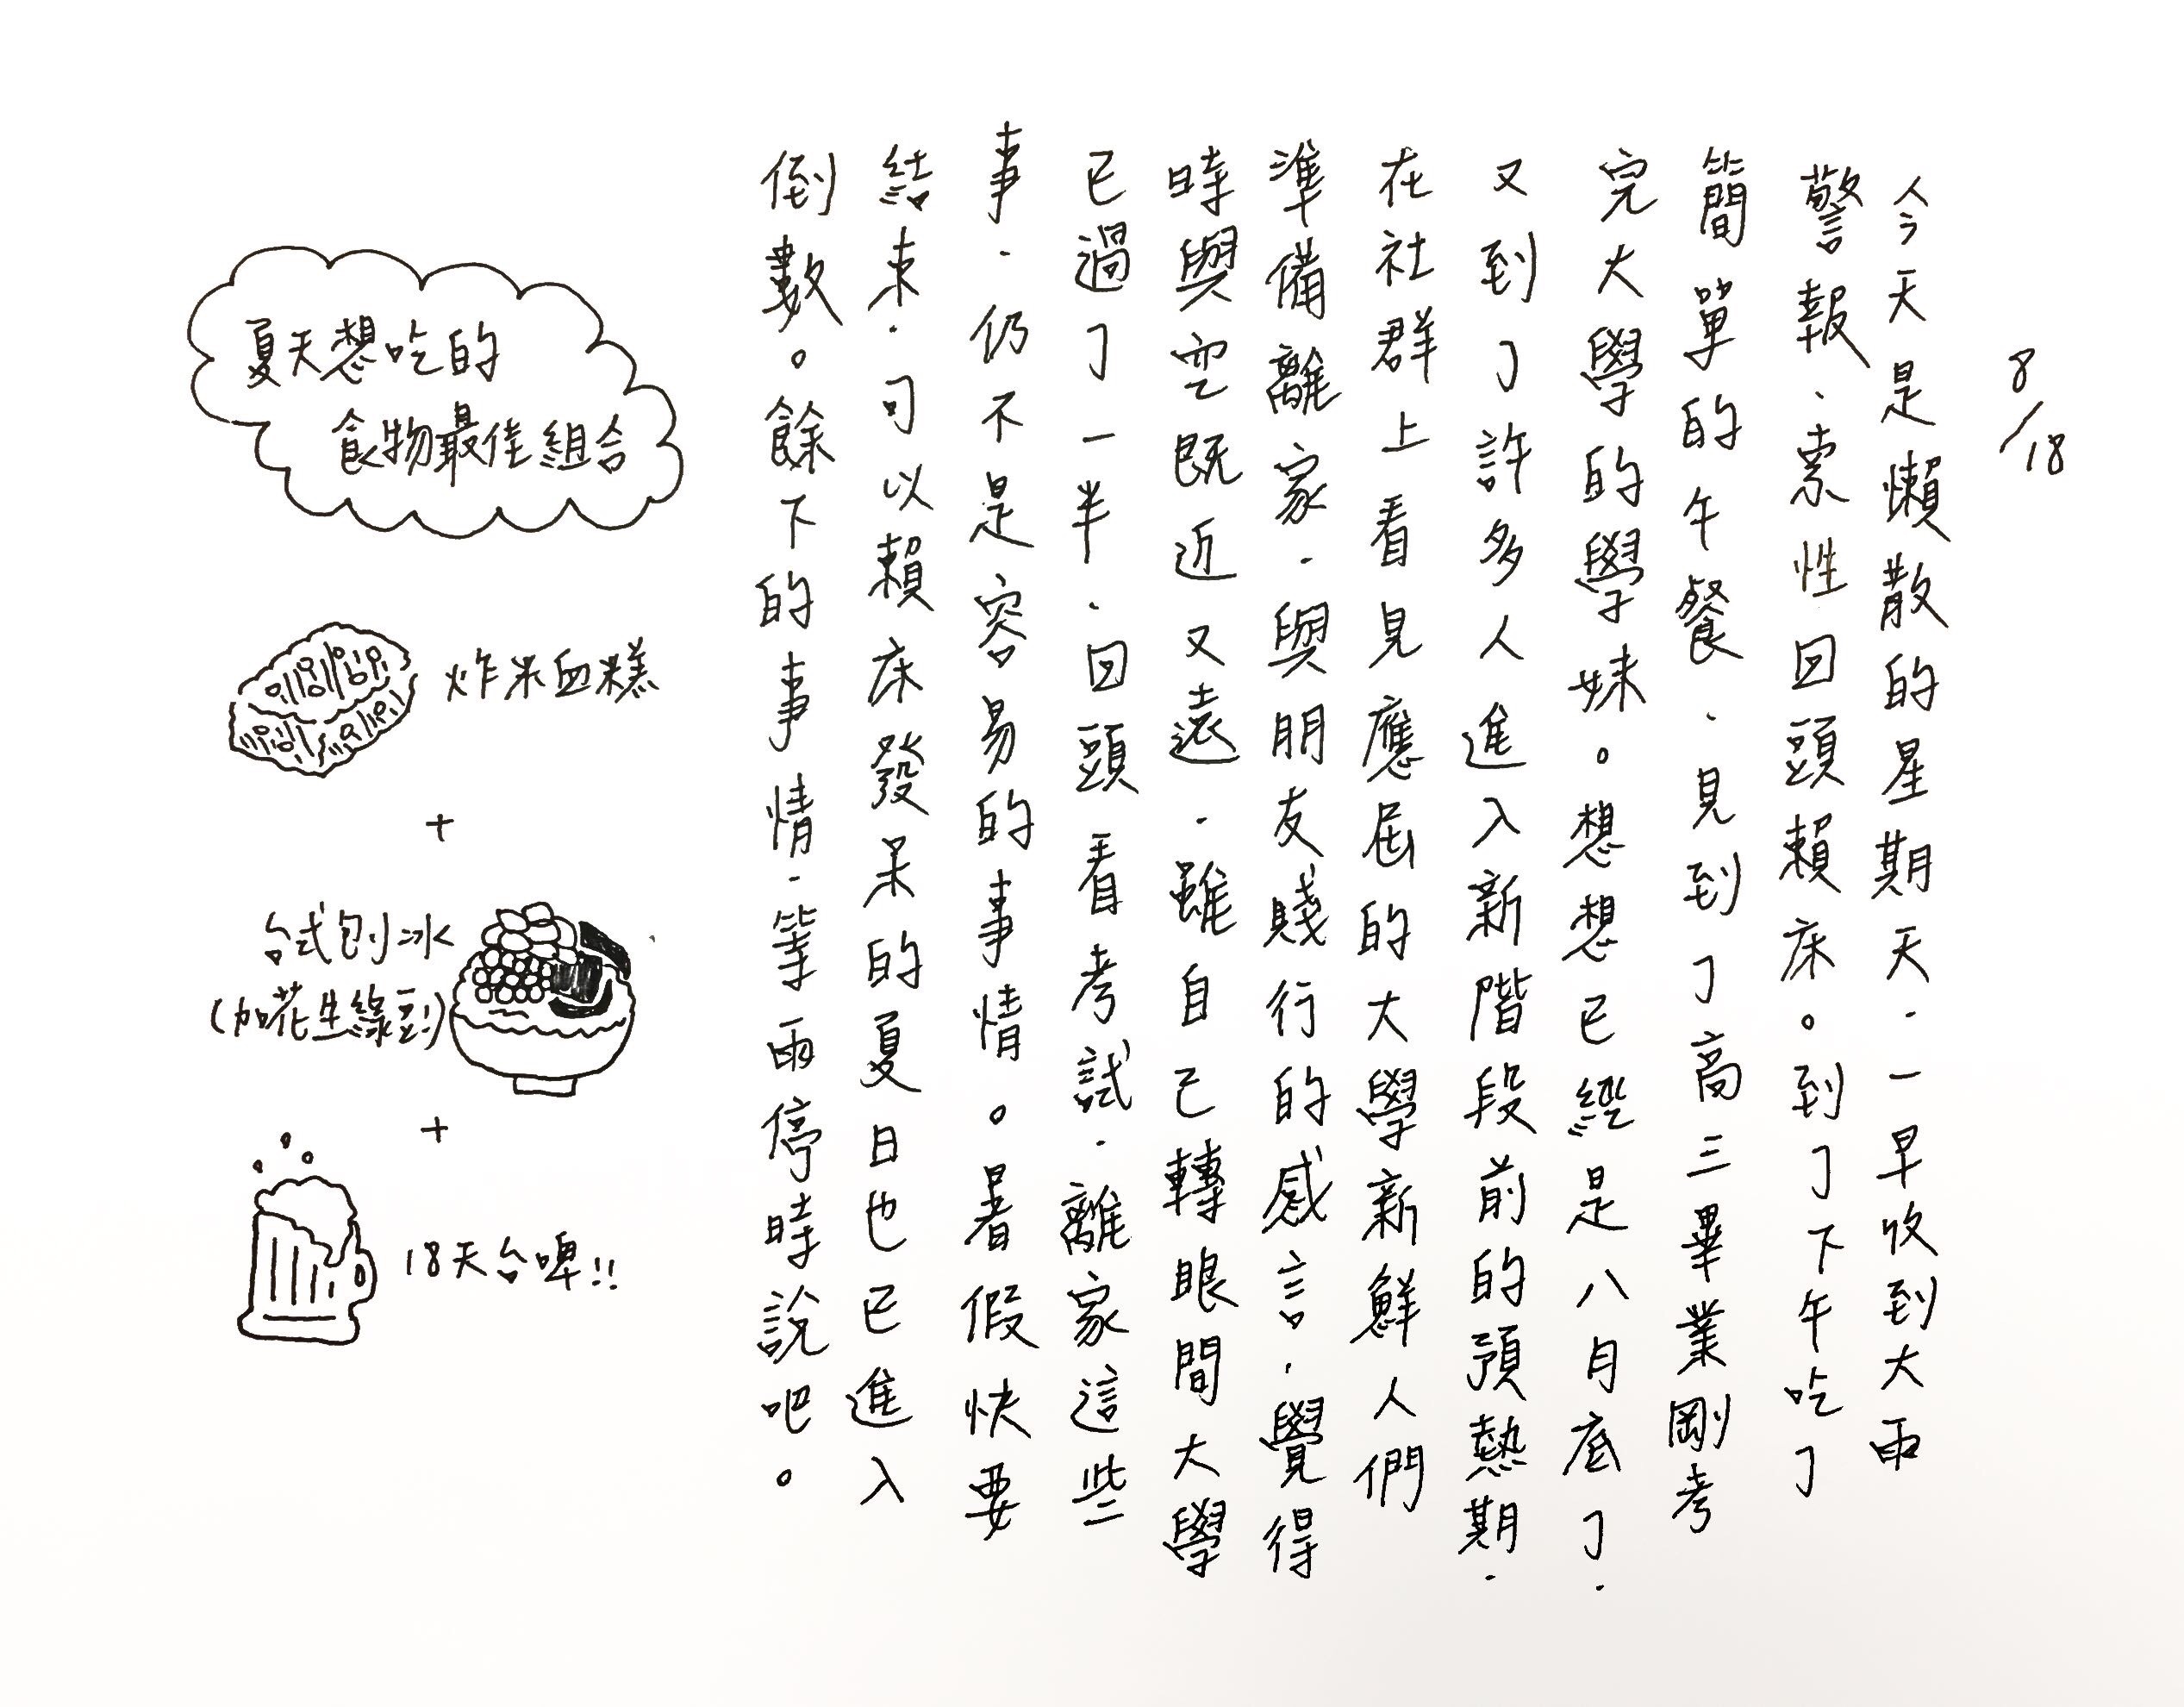 8/18
今天是懶散的星期天，一早收到大雨
警報，索性回頭賴床。到了下午吃了
簡單的午餐，見到了高三畢業剛考
完大學的學妹。想想已經是八月底了，
又到了許多人進入新階段前的預熱期，
在社群上看見應屆的大學新鮮人們
準備離家，與朋友賤行的感言，覺得
時與空既近又遠，雖自己轉眼間大學
已過了一半，回頭看考試，離家這些
事，仍不是容易的事情。暑假快要
結束，可以賴床發呆的夏日也已進入
倒數。餘下的事情，等雨停時說吧。
夏天想吃的
食物最佳組合
炸米血糕
+
台式刨冰
(加花生綠豆!)
+
18天台啤!!